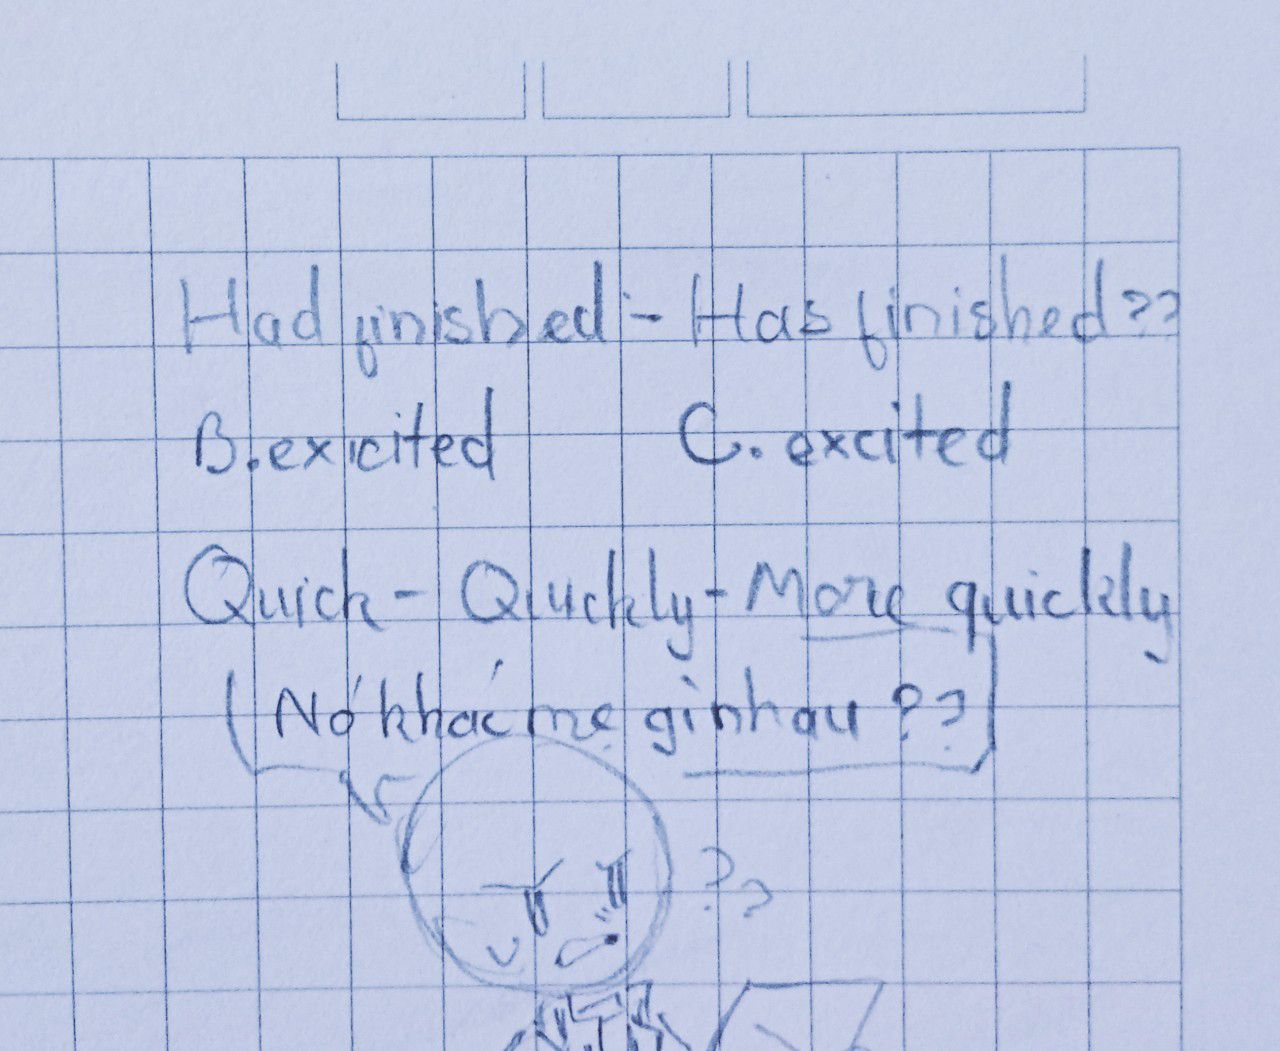 Had finished - Has finished??
B. exicited C. excited
Quick - Quickly - More quickly
(Nó khác mẹ gì nhau ??)
??